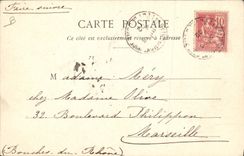 Faire suivre
CARTE POSTALE
Ce côté est exclusivement réservé à l'adresse
10
Madame Méry
chez Madame Olive
32 Boulevard Philippon
Marseille
(Bouches du Rhône)